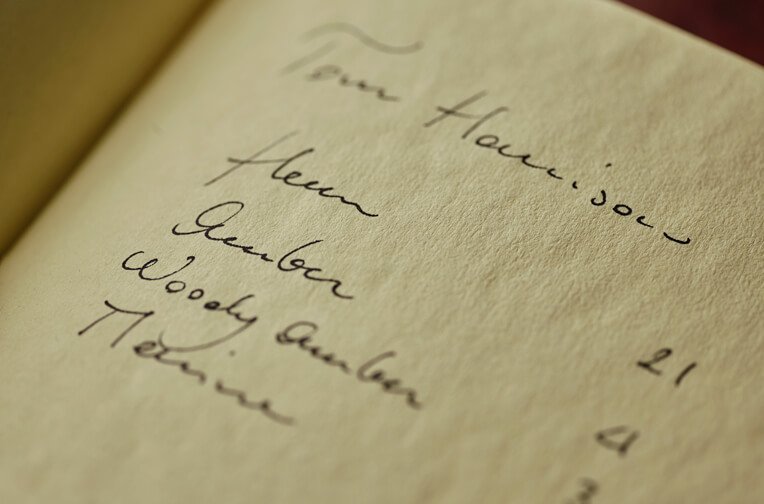 Tom Harrison
Amber
Woody Amber
Marine
21
4
3